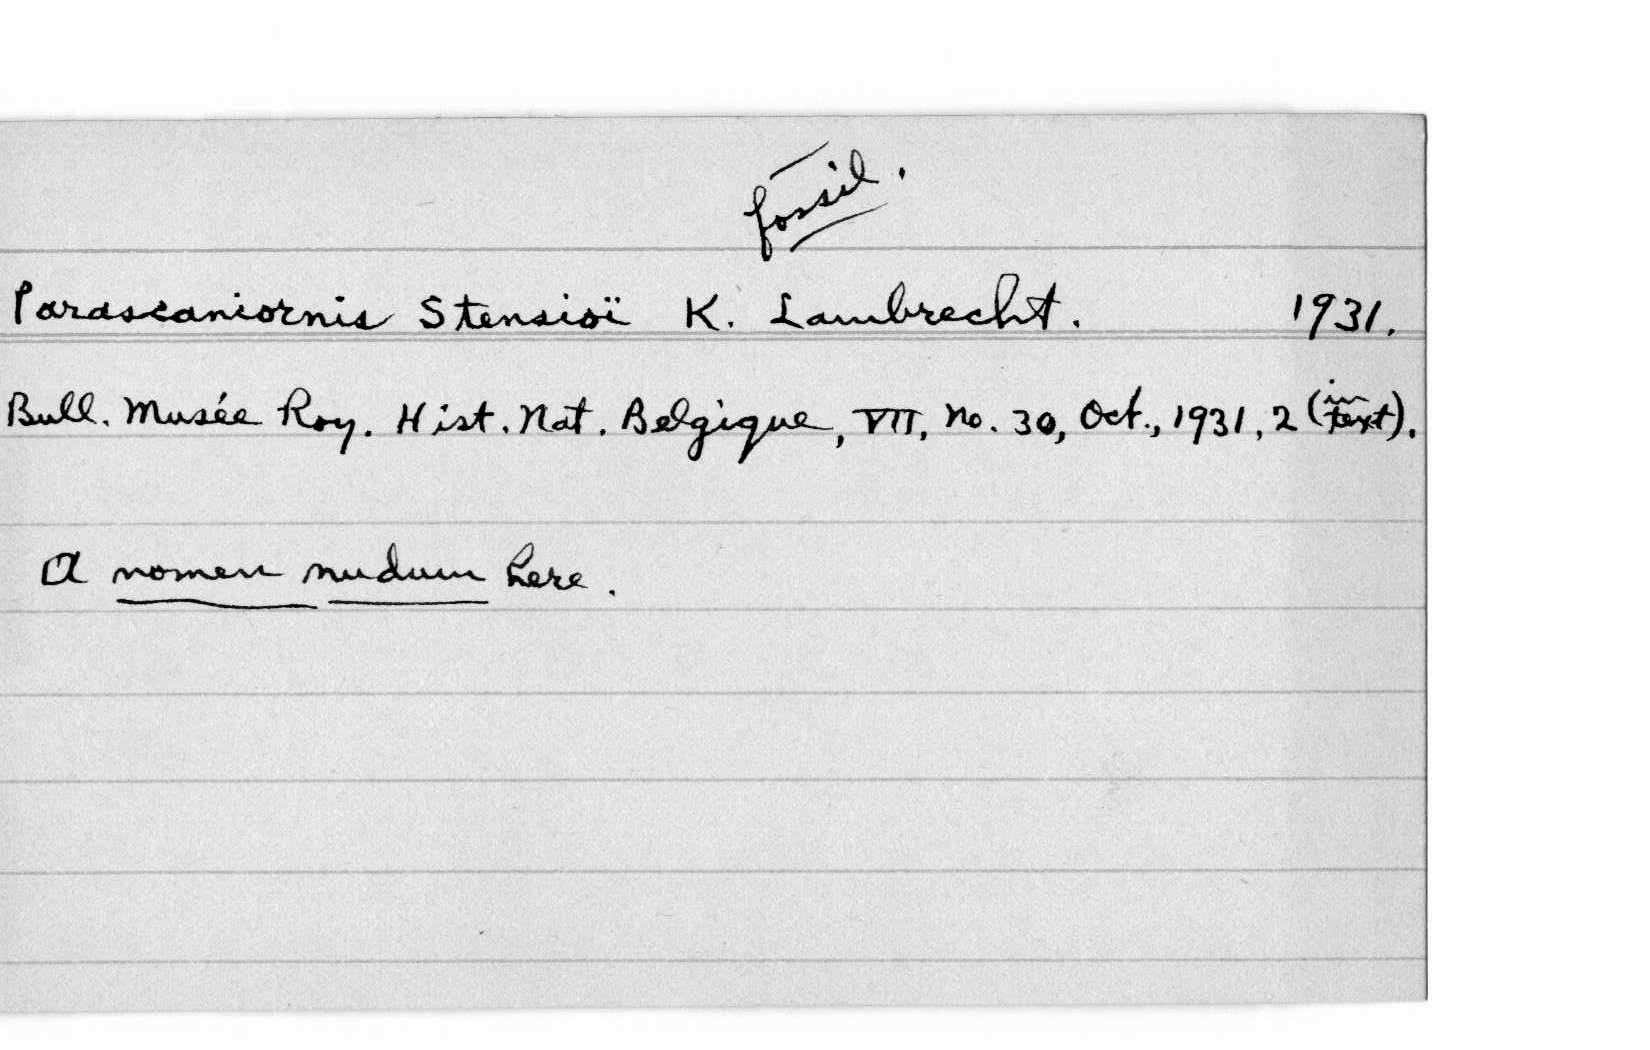 fossil.
Parascaniornis Stensioï K. Lambrecht. 1931.
Bull. Musée Roy. Hist. Nat. Belgique, VII, No. 30, Oct., 1931, 2 (in text).
A nomen nudum here.